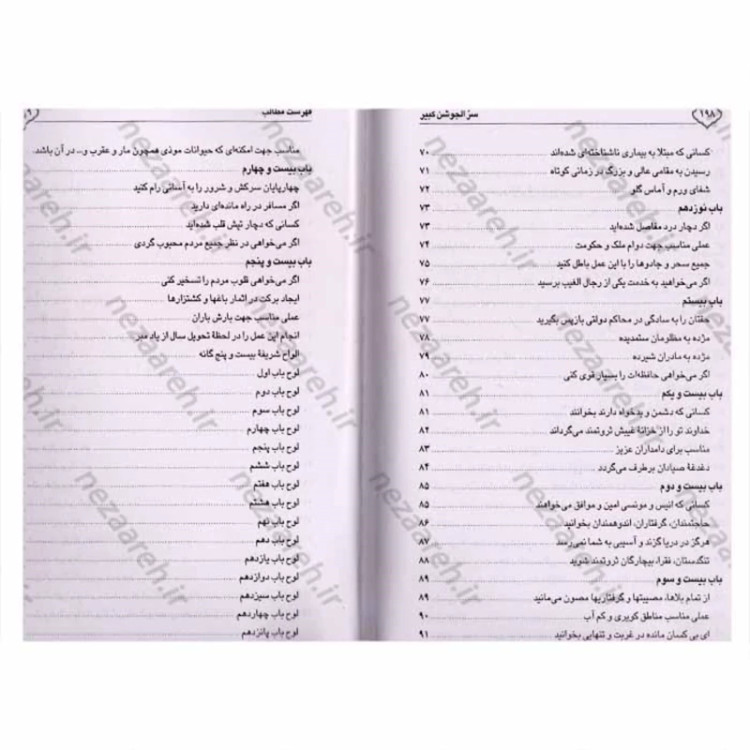 ۱۹۸
سرّ الجوشن کبیر
کسانی که مبتلا به بیماری ناشناخته‌ای شده‌اند ۷۰
رسیدن به مقامی عالی و بزرگ در زمانی کوتاه ۷۱
شفای ورم و آماس گلو ۷۲
باب نوزدهم ۷۳
اگر دچار درد مفاصل شده‌اید ۷۳
عملی مناسب جهت دوام ملک و حکومت ۷۴
جمیع سحر و جادوها را با این عمل باطل کنید ۷۵
اگر می‌خواهید به خدمت یکی از رجال الغیب برسید ۷۶
باب بیستم ۷۷
حقتان را به سادگی در محاکم دولتی بازپس بگیرید ۷۷
مژده به مظلومان ستمدیده ۷۸
مژده به مادران شیرده ۷۹
اگر می‌خواهی حافظه‌ات را بسیار قوی کنی ۸۰
باب بیست و یکم ۸۱
کسانی که دشمن و بدخواه دارند بخوانند ۸۱
خداوند تو را از خزانهٔ غیبش ثروتمند می‌گرداند ۸۲
مناسب برای دامداران عزیز ۸۳
دغدغهٔ صیادان برطرف می‌گردد ۸۴
باب بیست و دوم ۸۵
کسانی که انیس و مونسی امین و موافق می‌خواهند ۸۵
حاجتمندان، گرفتاران، اندوهمندان بخوانید ۸۶
هرگز در دریا گزند و آسیبی به شما نمی‌رسد ۸۷
تنگدستان، فقرا، بیچارگان ثروتمند شوید ۸۸
باب بیست و سوم ۸۹
از تمام بلاها، مصیبتها و گرفتاریها مصون می‌مانید ۸۹
عملی مناسب مناطق کویری و کم آب ۹۰
ای بی کسان مانده در غربت و تنهایی بخوانید ۹۱
فهرست مطالب
مناسب جهت امکنه‌ای که حیوانات موذی همچون مار و عقرب و... در آن باشد.
باب بیست و چهارم
چهارپایان سرکش و شرور را به آسانی رام کنید
اگر مسافر در راه مانده‌ای دارید
کسانی که دچار تپش قلب شده‌اید
اگر می‌خواهی در نظر جمیع مردم محبوب گردی
باب بیست و پنجم
اگر می‌خواهی قلوب مردم را تسخیر کنی
ایجاد برکت در اثمار باغها و کشتزارها
عملی مناسب جهت بارش باران
انجام این عمل را در لحظهٔ تحویل سال از یاد مبر
الواح شریفهٔ بیست و پنج گانه
لوح باب اول
لوح باب دوم
لوح باب سوم
لوح باب چهارم
لوح باب پنجم
لوح باب ششم
لوح باب هفتم
لوح باب هشتم
لوح باب نهم
لوح باب دهم
لوح باب یازدهم
لوح باب دوازدهم
لوح باب سیزدهم
لوح باب چهاردهم
لوح باب پانزدهم
nezaareh.ir
nezaareh.ir
nezaareh.ir
nezaareh.ir
nezaareh.ir
nezaareh.ir
nezaareh.ir
nezaareh.ir